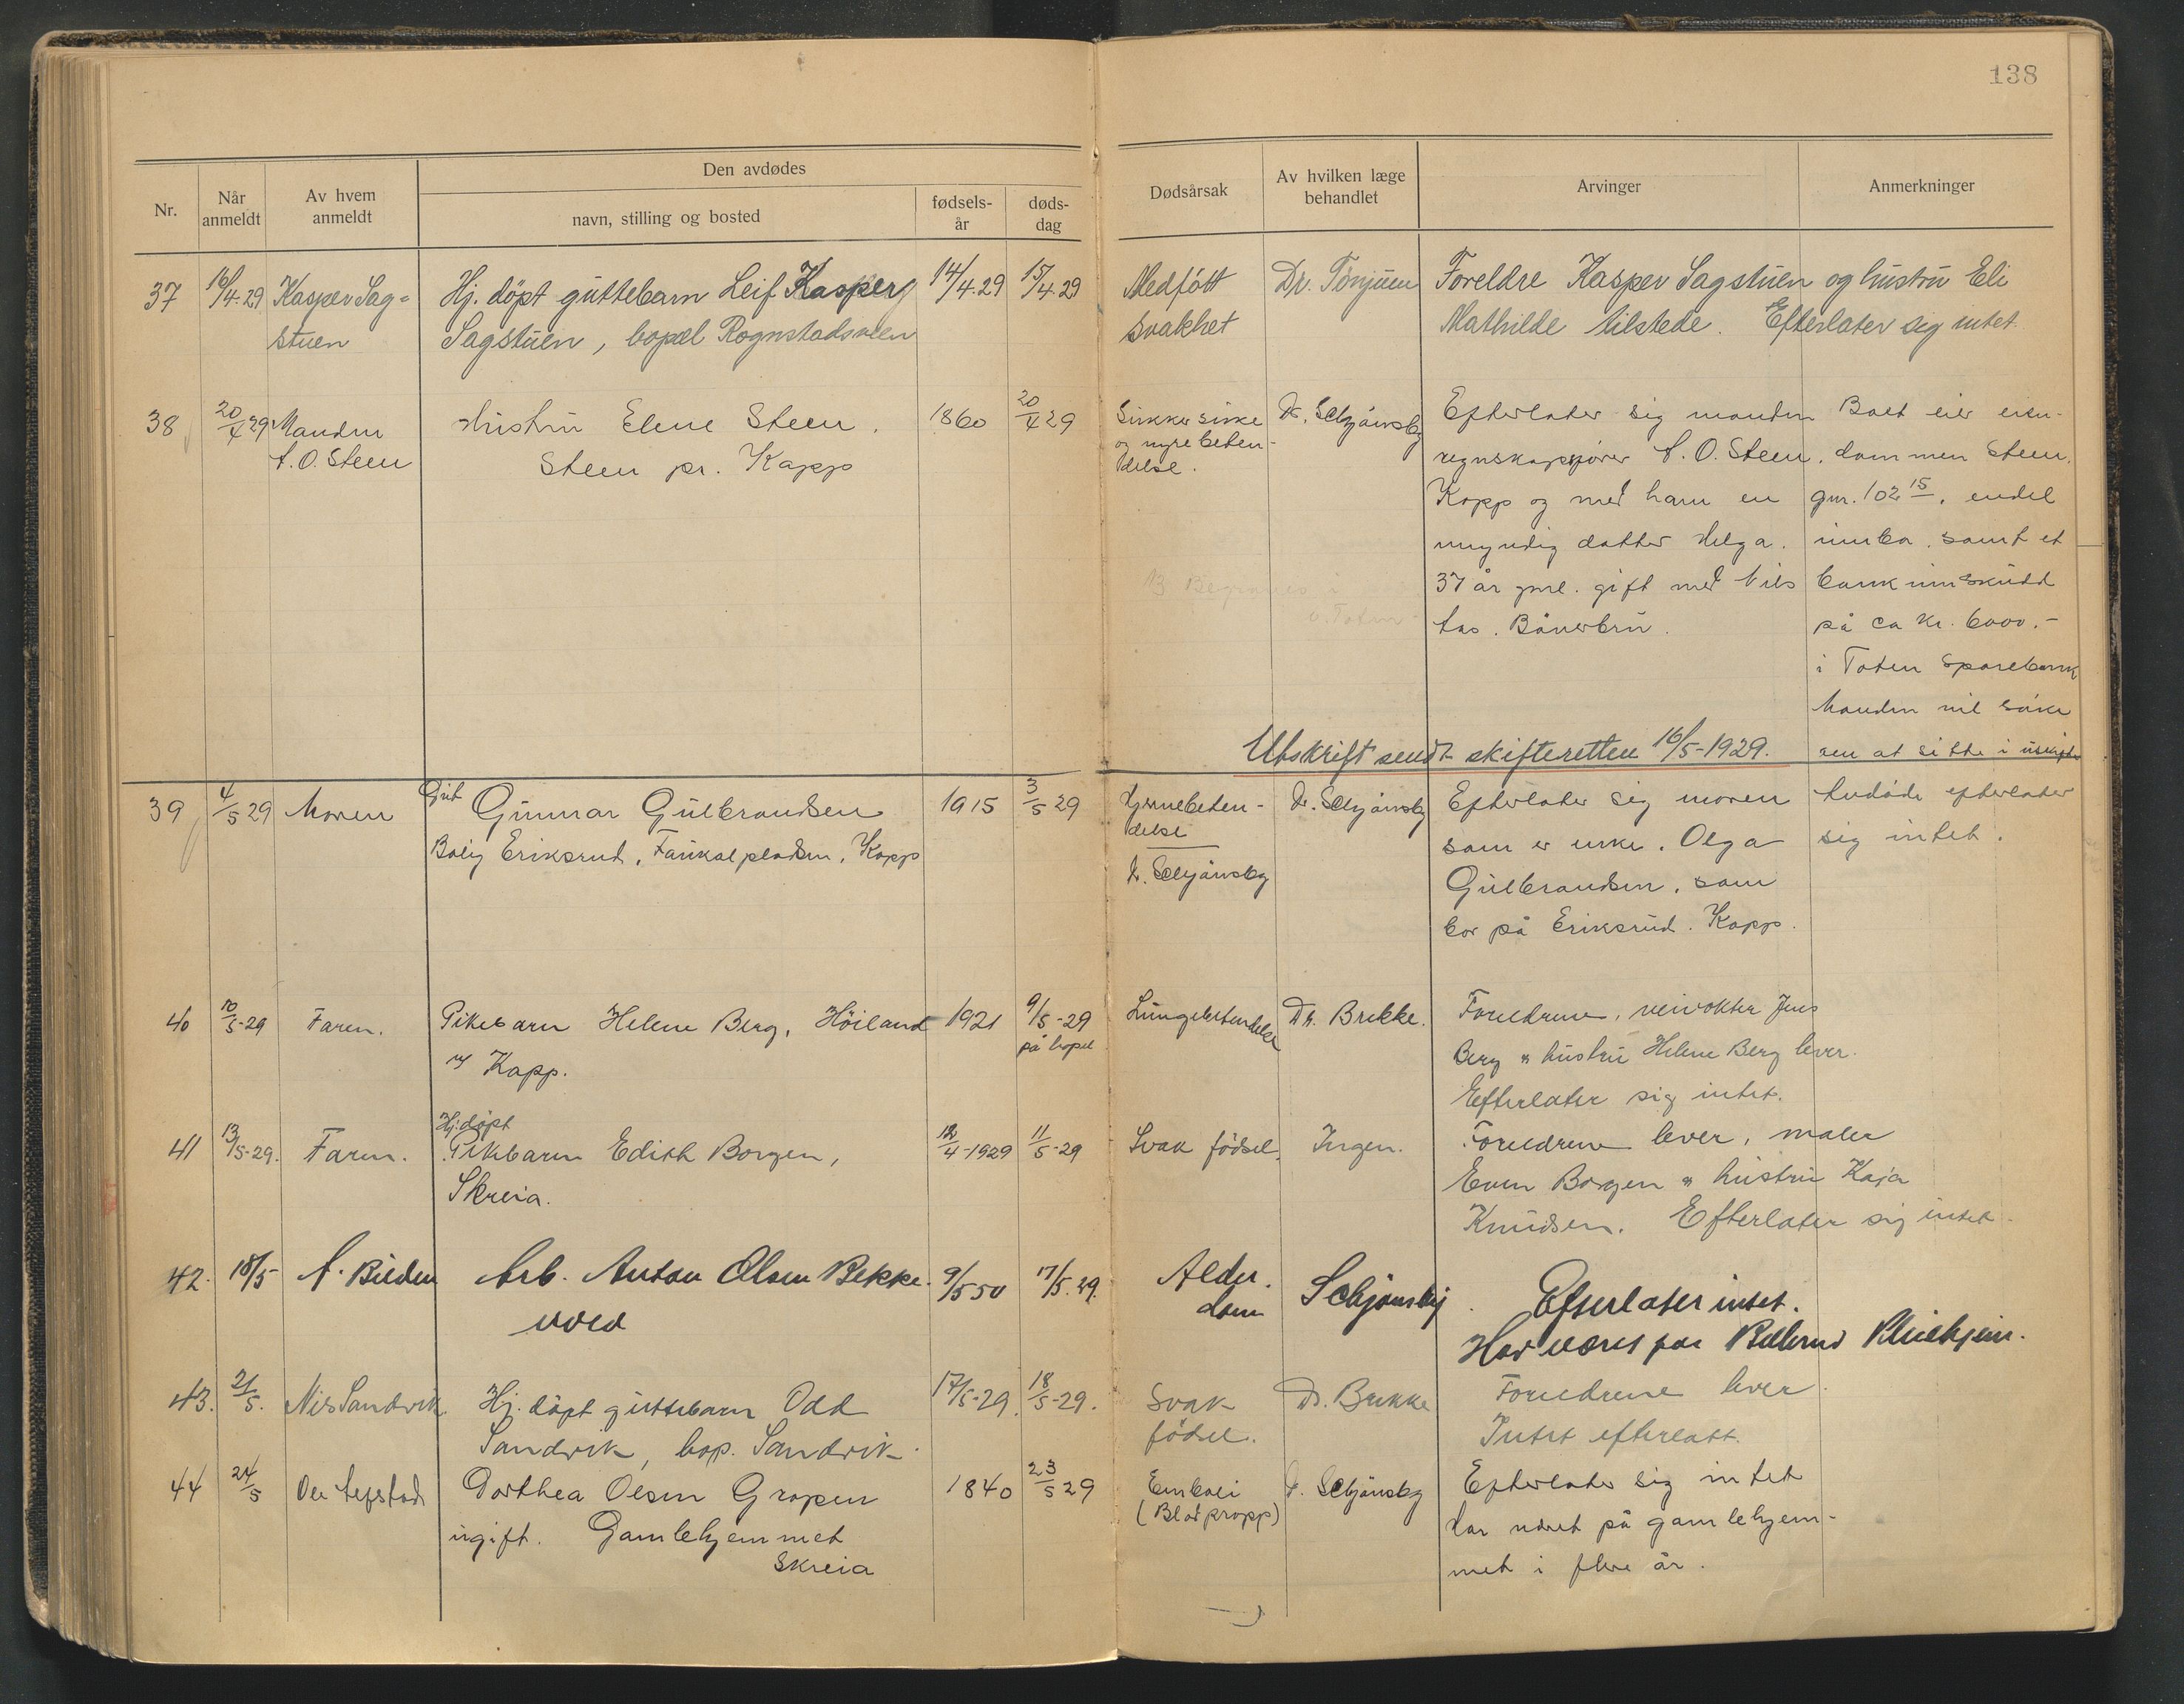 138
Den avdødes
Nr.
Når anmeldt
Av hvem anmeldt
navn, stilling og bosted
fødsels-år
døds-dag
Dødsårsak
Av hvilken læge behandlet
Arvinger
Anmerkninger
37 16/4-29 Kasper Sag= Hj. döpt guttebarn Leif Kasper 14/4-29 15/4-29 Medfött Dr. Tönjum Foreldre Kasper Sagstuen og hustru Eli
stuen Sagstuen, bopæl Rognstadsveen svakhet Mathilde tilstede. Efterlater sig intet.
38 20/4 29 Manden Hustru Elene Steen. 1860 20/4 29 Sukkersyke Dr. Schjønsby Efterlater sig manden Boet eier eien-
A. O. Steen Steen pr. Kapp og nyrebeten- regnskapsfører A. O. Steen. dommen Steen.
delse. Kapp og med ham en gnr. 102 15. endel
myndig datter Helga. innbo. samt et
37 år gml. gift med Nils bankinnskudd
på ca Kr. 6000.-
i Toten Sparebank
Manden vil søke
Utskrift sendt skifteretten 16/5-1929. om at sitte i uskifte
39 4/5 29 Moren Gut Gunnar Gulbrandsen 1915 3/5 29 Hjernebeten- Dr. Schjønsby Efterlater sig moren Avdøde efterlater
Bolig Eriksrud, Faukalpladsen, Kapp delse som er enke. Olga sig intet.
Dr. Schjønsby Gulbrandsen, som
bor på Eriksrud. Kapp.
40 10/5-29 Faren. Pikebarn Helene Berg, Höiland 1921 9/5-29 Lungebetendelse Dr. Brekke. Foreldrene, veivokter Jens
på bopel Berg og hustru Helene Berg lever.
Kapp. Efterlater sig intet.
Hj. döpt
41 13/5-29. Faren. Pikebarn Edith Borgen, 12/4-1929 11/5-29 Svak födsel. Ingen. Foreldrene lever, maler
Skreia. Even Borgen og hustru Kaja
Knudsen. Efterlater sig intet.
42. 18/5 A. Bilden Arb. Anton Olsen Bekke- 9/5 50 17/5.29. Alder- Schjønsby Efterlater intet.
dom Har været paa Pleiehjem.
43. 21/5. Nils Sandvik Hj. döpt guttebarn Odd 17/5-29. 18/5-29. Svak Dr. Brekke Foreldrene lever.
Sandvik, bop. Sandvik. födsel. Intet efterlatt.
44 24/5 Ole Dorthea Olsen Gropen 1840 23/5 29 Emboli Dr. Schjønsby Efterlater sig intet
ugift. Gamlehjemmet (Blodpropp) Har været på gamlehjem-
Skreia met i flere år.